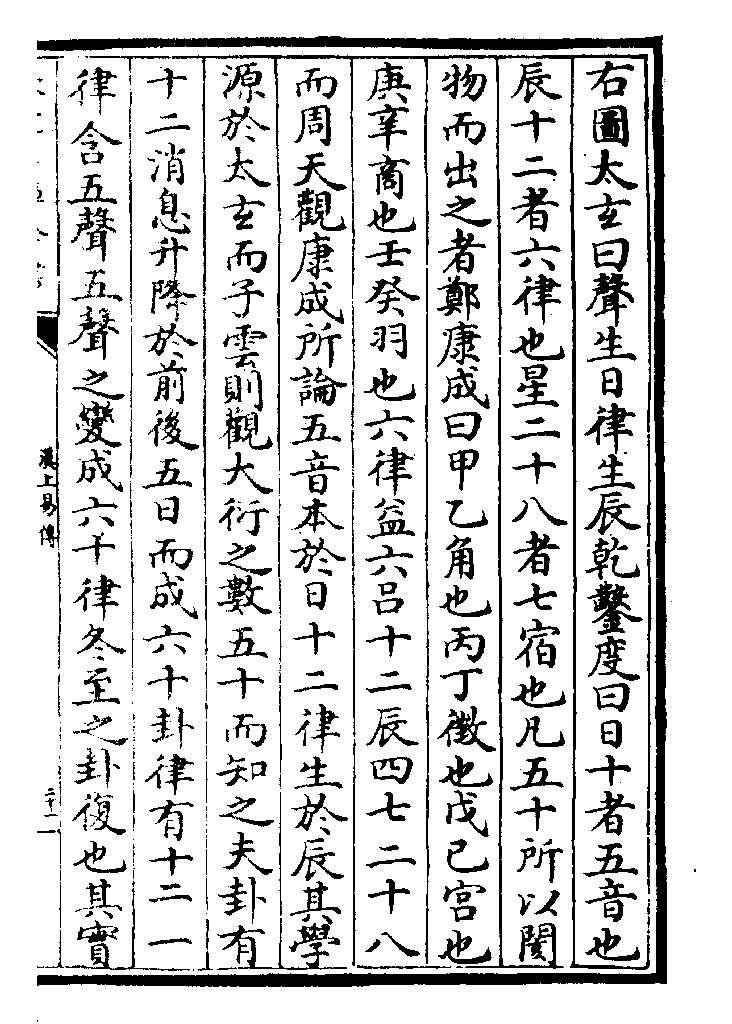 右圖太玄曰聲生日律生辰乾鑿度曰日十者五音也
辰十二者六律也星二十八者七宿也凡五十所以閡
物而出之者鄭康成曰甲乙角也丙丁徵也戊己宮也
庚辛商也壬癸羽也六律益六呂十二辰四七二十八
而周天觀康成所論五音本於日十二律生於辰其學
源於太玄而子雲則觀大衍之數五十而知之夫卦有
十二消息升降於前後五日而成六十卦律有十二一
律含五聲五聲之變成六十律冬至之卦復也其實
漢上易傳
二十一